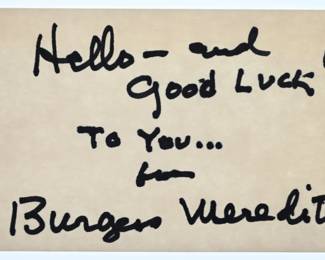 Hello — and
Good Luck
To You...
from
Burgess Meredit